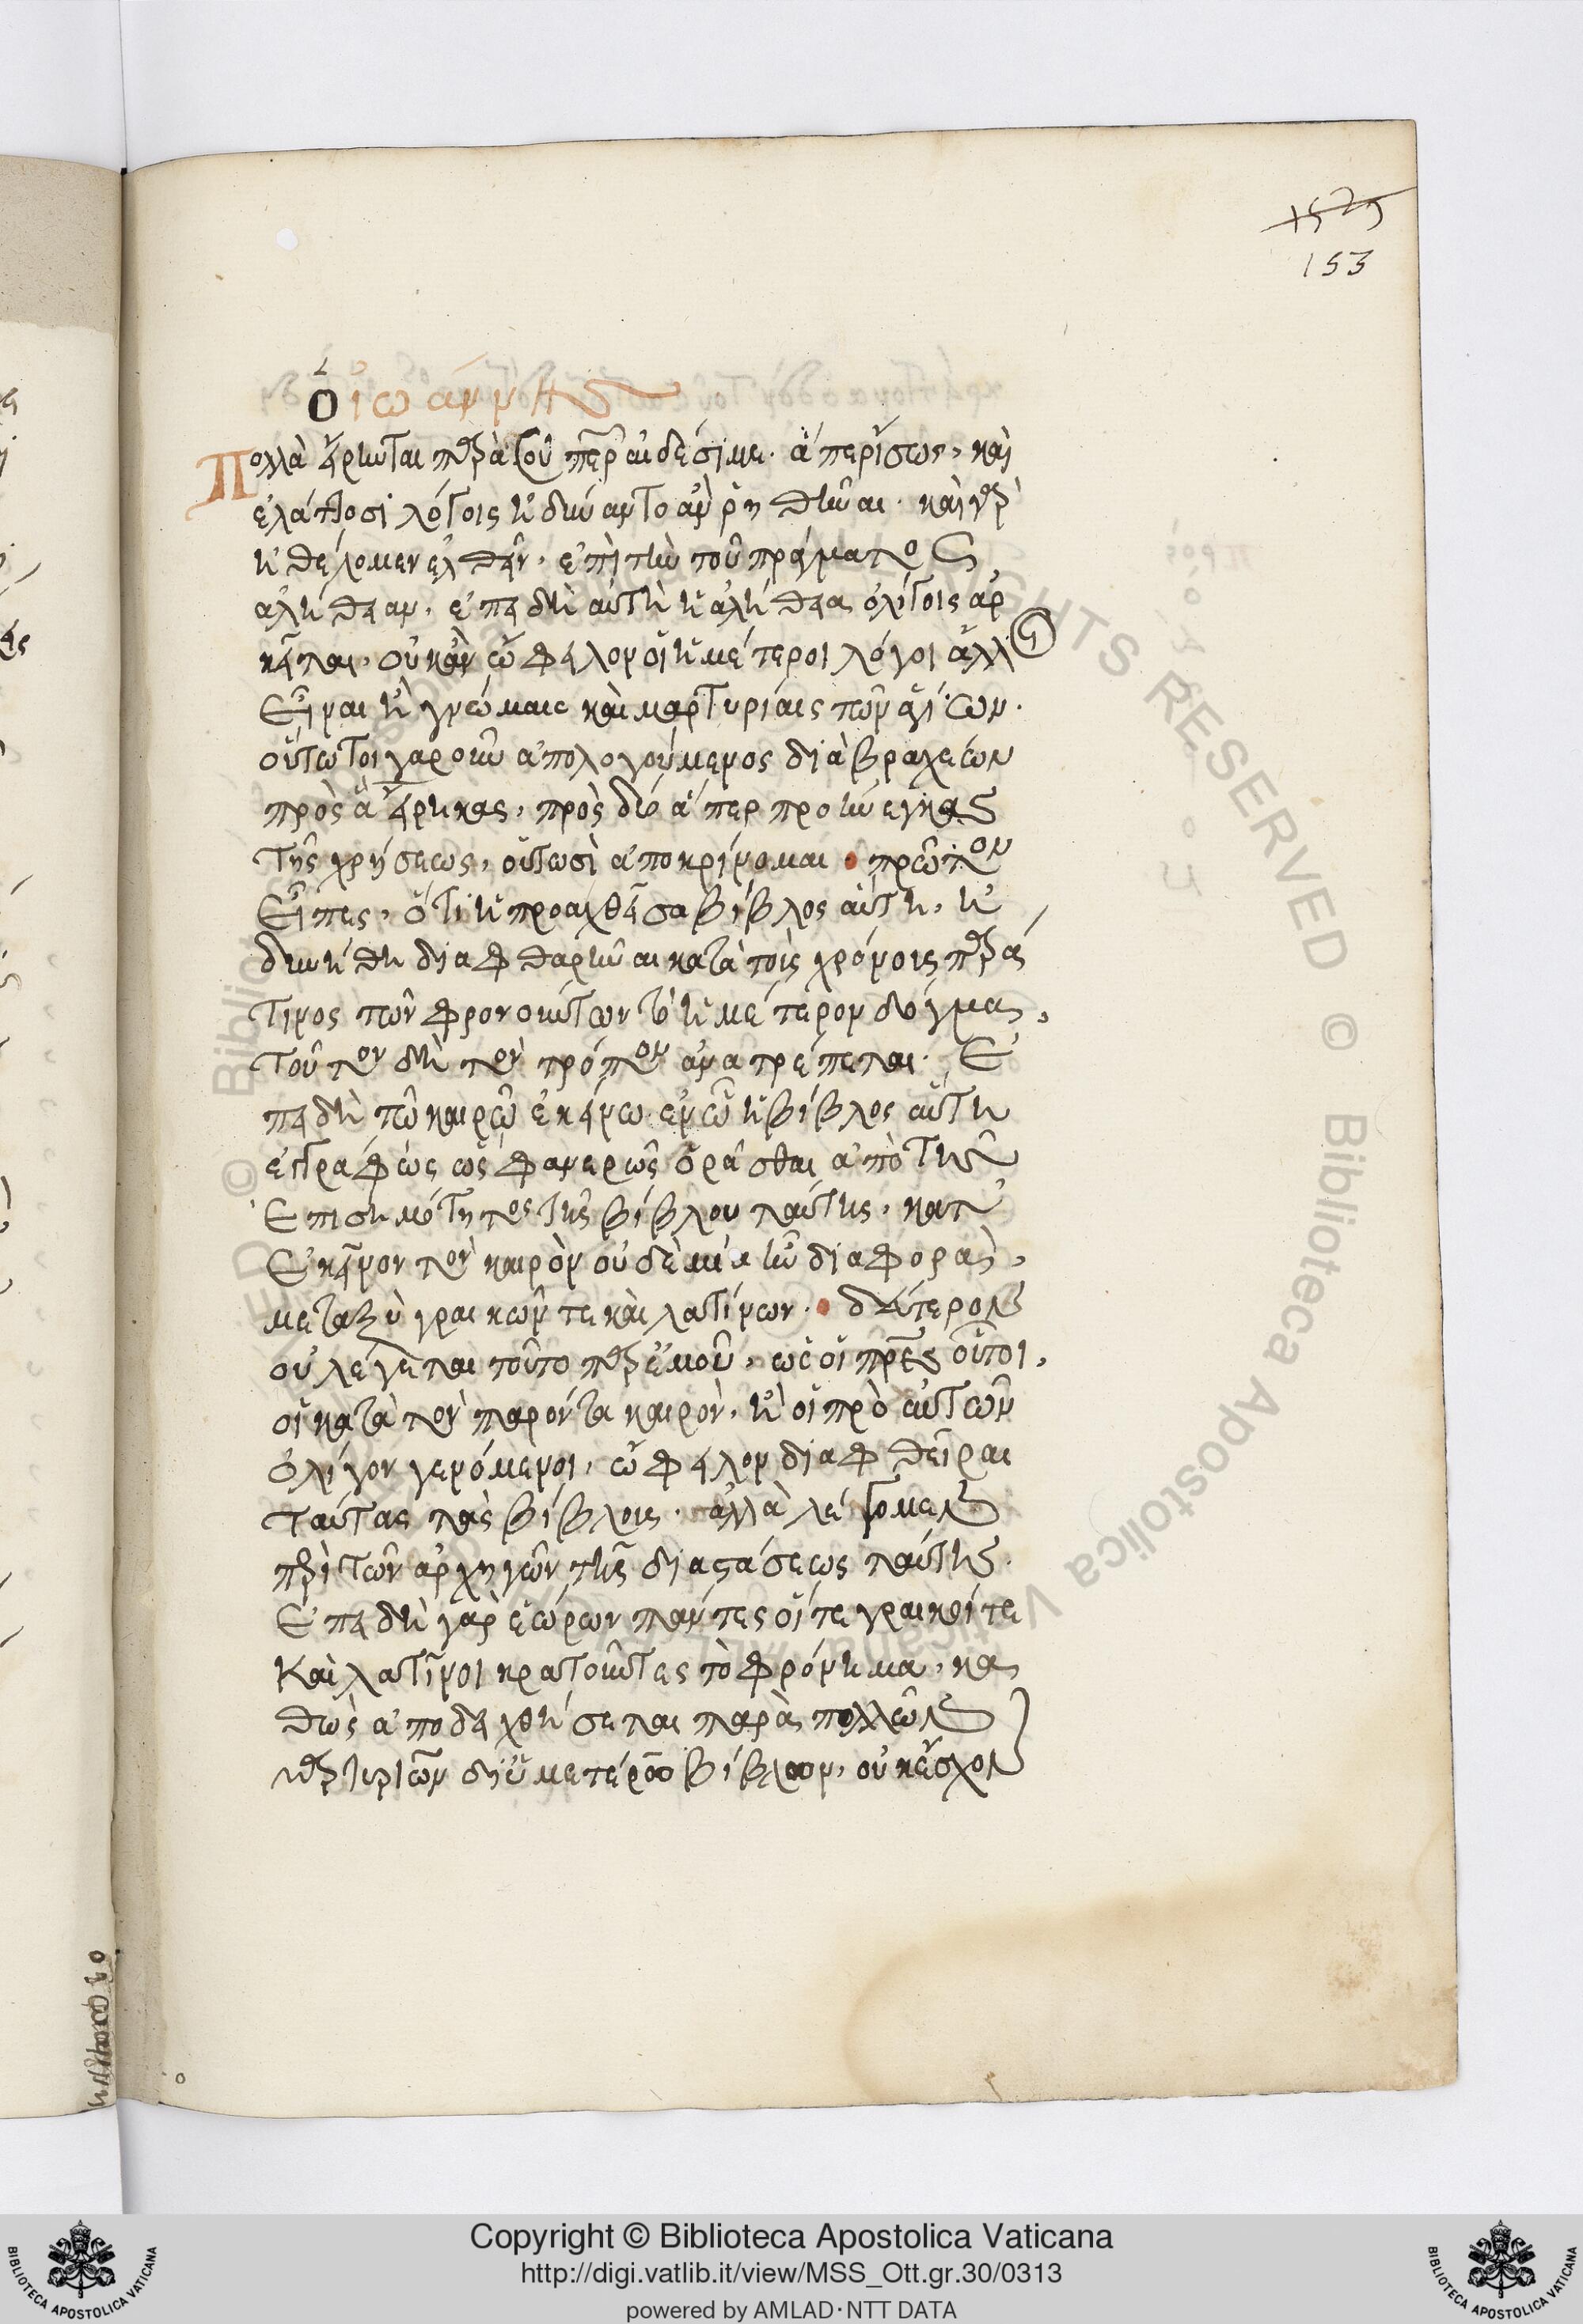 1525
153
Ὁ ἰωάννης
Πολλὰ εἴρηνται παρὰ σοῦ πάτερ αἰδέσιμε. ἅπερ ἴσως, καὶ
ἐλάττοσι λόγοις ἠδύναντο ἂν ῥηθῆναι. καὶ γὰρ
εἰ θέλομεν ἐλθεῖν, ἐπὶ τὴν τοῦ πράγματος
ἀλήθειαν, ἐπειδὴ αὐτὴ ἡ ἀλήθεια ὀλίγοις ἀρ
κεῖται, οὐκ ἂν ὤφειλον οἱ ἡμέτεροι λόγοι ἄλλο
εἶναι ἢ γνώμαις καὶ μαρτυρίαις τῶν ἁγίων.
οὕτω τοιγαροῦν ἀπολογούμενος διὰ βραχέων
πρὸς ἃ εἴρηκας, πρὸς δύο ἅπερ προήνεγκας
τῆς χρήσεως, οὑτωσὶ ἀποκρίνομαι. πρῶτον
εἶπες, ὅτι ἡ προαχθεῖσα βίβλος αὕτη, ἠ
δυνήθη διαφθαρῆναι κατὰ τοὺς χρόνους παρά
τινος τῶν φρονούντων τὸ ἡμέτερον δόγμα,
τοῦτον δὴ τὸν τρόπον ἀνατρέπεται. ἐ
πειδὴ τῷ καιρῷ ἐκείνω ἐν ᾧ ἡ βίβλος αὕτη
ἐγράφη ὡς φανερῶς ὁρᾶσθαι ἀπὸ τῆς
ἐπισημότητος τῆς βίβλου ταύτης, κατ'
ἐκεῖνον τὸν καιρὸν οὐδεμία ἦν διαφορὰ,
μεταξὺ γραικῶν τε καὶ λατίνων. δεύτερον
οὐ λέγεται τοῦτο παρ' ἐμοῦ, ὡς οἱ πατέρες οὗτοι,
οἱ κατὰ τὸν παρόντα καιρὸν, ἢ οἱ πρὸ αὐτῶν
ὀλίγον γενόμενοι, ὤφειλον διαφθεῖραι
ταύτας τὰς βίβλους. ἀλλὰ λέγομεν
περὶ τῶν ἀρχηγῶν τῆς διαστάσεως ταύτης.
ἐπειδὴ γὰρ ἑώρων πάντες οἵ τε γραικοί τε
καὶ λατῖνοι κρατοῦντες τὸ φρόνημα, κα
θὼς ἀποδειχθήσεται παρὰ πολλῶν
μαρτυριῶν δι' ὑμετέρων βίβλων, οὐκ ἔσχον
Copyright © Biblioteca Apostolica Vaticana
http://digi.vatlib.it/view/MSS_Ott.gr.30/0313
powered by AMLAD·NTT DATA